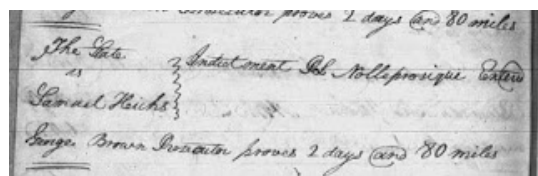 Prosecutor proves 2 days and 80 miles
The State
vs
Samuel Heichs
Indictment Nolleprosique Entered
George Brown Prosecutor proves 2 days and 80 miles